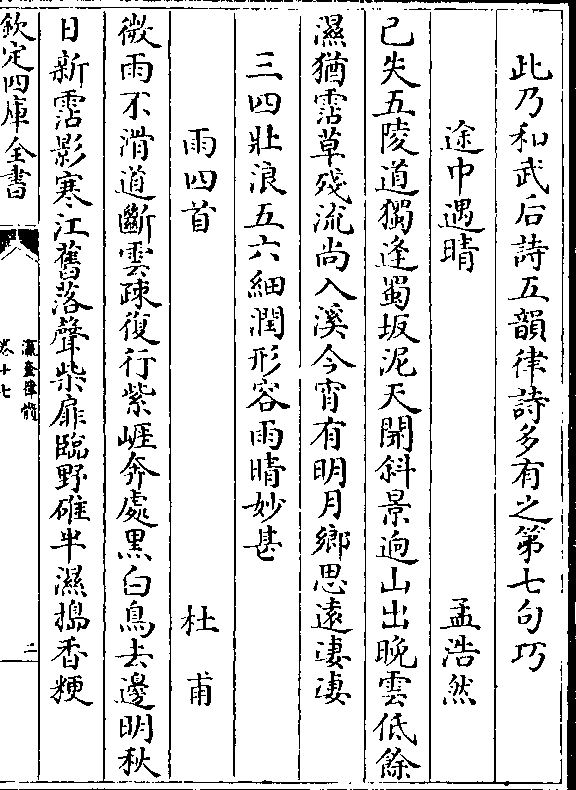 此乃和武后詩五韻律詩多有之第七句巧
途中遇晴　孟浩然
已失五陵道獨逢蜀坂泥天開斜景逈山出晚雲低餘
濕猶霑草殘流尚入溪今宵有明月鄉思遠凄凄
三四壯浪五六細潤形容雨晴妙甚
雨四首　杜甫
微雨不滑道斷雲疎復行紫崕奔處黑白鳥去邊明秋
日新霑影寒江舊落聲柴扉臨野碓半濕搗香粳
欽定四庫全書
瀛奎律髓
卷十七
二